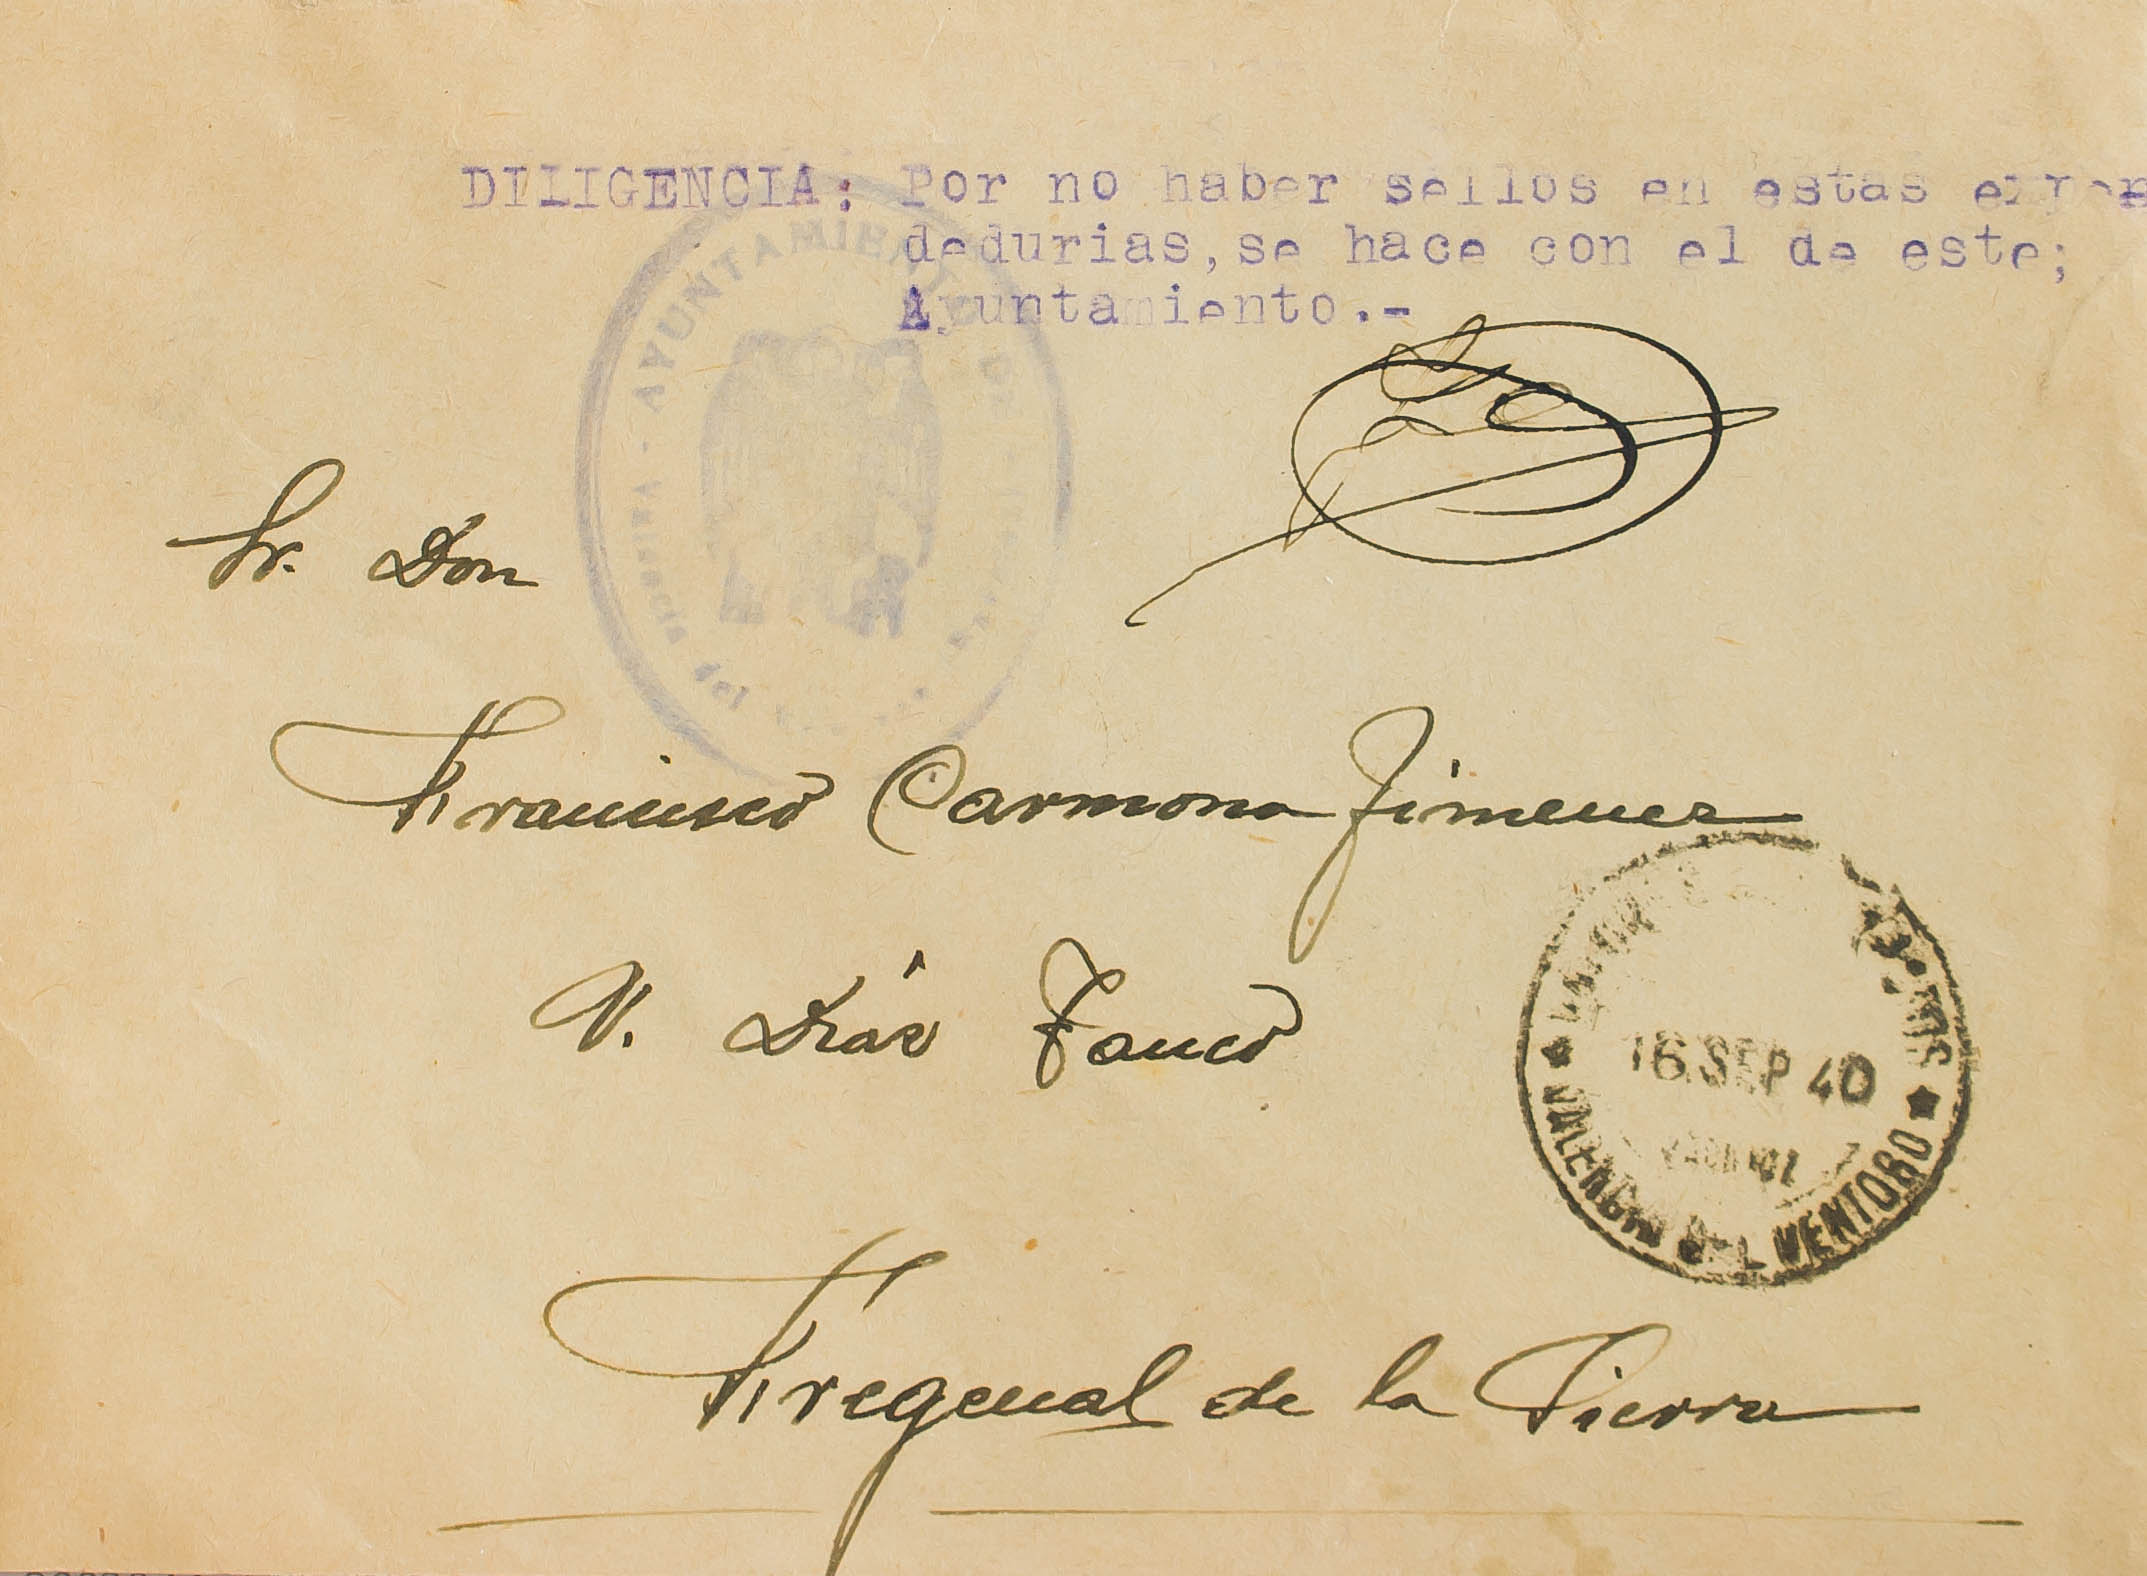 DILIGENCIA: Por no haber sellos en estas expen
dedurias, se hace con el de este;
Ayuntamiento.-
AYUNTAMIENTO DE
Sr. Don
Francisco Carmona Jimenez
V. Diáz Tanco
16 SEP 40
VALENCIA DEL VENTOSO
Fregenal de la Sierra